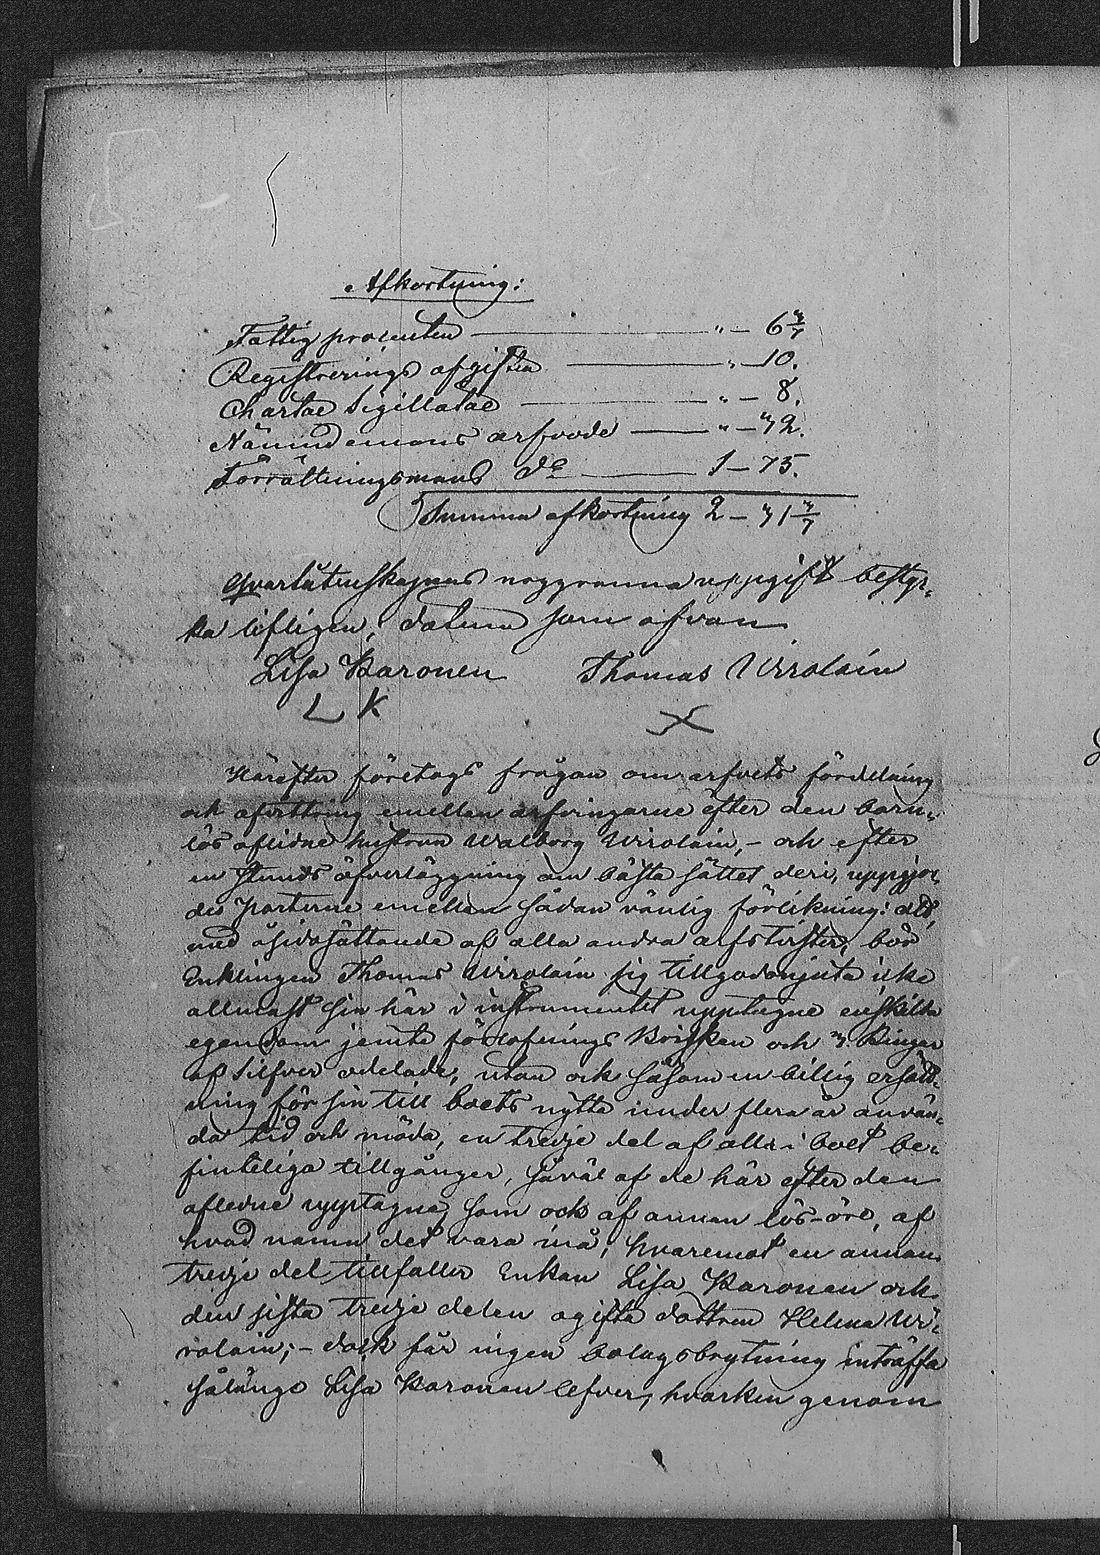 Afkortning:
Fattig procenten — " — 6 3/7
Registrerings afgiften — " — 10.
Chartae Sigillatae — " — 8.
Nämndemans arfvode — " — 32.
Förrättningsmans d:o — 1 — 75.
Summa afkortning 2 — 31 3/7
Qvarlåtenskapens noggranna uppgift bestyr-
ka lifligen, datum som ofvan
Lisa Karonen Thomas Wirolain
L K X
Härefter företogs frågan om arfvets fördelning
och afvittring emellan arfvingarne efter den barn-
lös aflidne hustrun Walborg Wirolain, - och efter
en stunds öfverläggning om bästa sättet deri, uppgjor-
des parterne emellan sådan vänlig förlikning: att,
med åsidosättande af alla andra arfstvister, bör
Enklingen Thomas Wirolain sig tillgodonjuta icke
allenast sin här i instrumentet upptagne enskilda
egendom jemte förlofnings Brisken och 3 Ringar
af Silfver odelade, utan ock såsom en billig ersätt-
ning för sin till boets nytta under flera år använ-
da tid och möda, en tredje del af alla i boet be-
finteliga tillgångar, såväl af de här efter den
aflidne upptagne, som ock af annan lös-öre, af
hvad namn det vara må; hvaremot en annan
tredje del tillfaller Enkan Lisa Karonen och
den sista tredje delen ogifta dottren Helena Wi-
rolain; - dock får ingen bolagsbrytning inträffa
sålänge Lisa Karonen lefver, hvarken genom